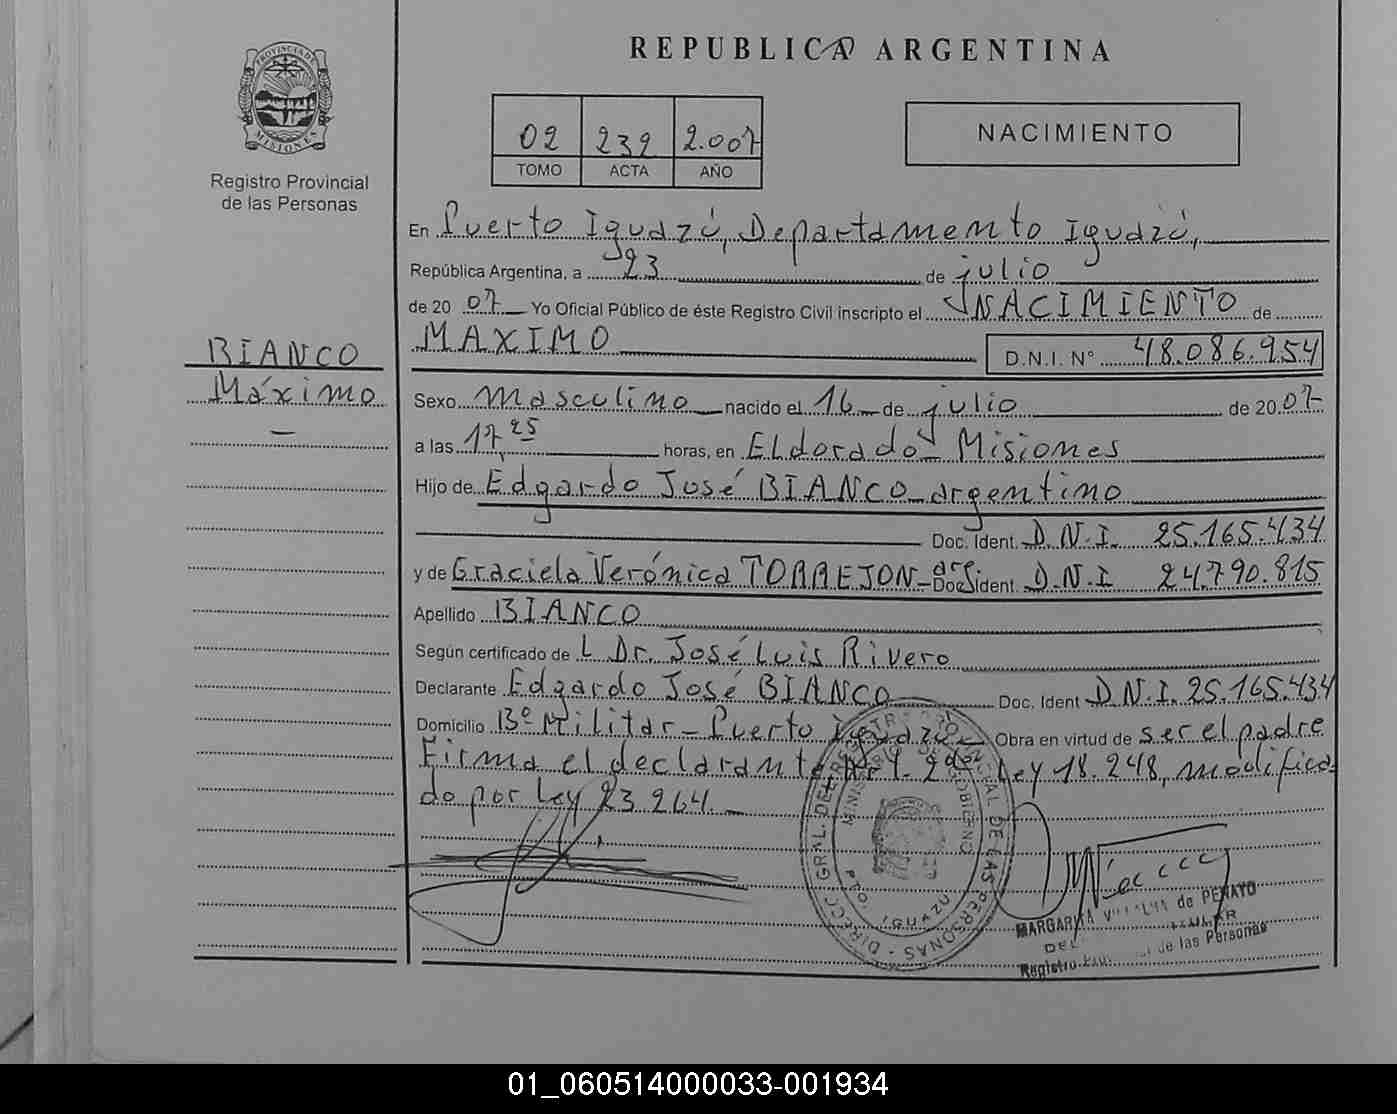 REPUBLICA ARGENTINA
PROVINCIA DE
MISIONES
Registro Provincial
de las Personas
02 232 2.007
TOMO ACTA AÑO
NACIMIENTO
En Puerto Iguazú, Departamento Iguazú,
República Argentina, a 23 de julio
de 20 07 Yo Oficial Público de éste Registro Civil inscripto el NACIMIENTO de
MAXIMO D.N.I. N° 48.086.954
BIANCO
Máximo
Sexo masculino nacido el 16 de julio de 20 07
a las 17,25 horas, en Eldorado - Misiones
Hijo de Edgardo José BIANCO argentino
Doc. Ident. D.N.I. 25.165.434
y de Graciela Verónica TORREJON - arg Doc. Ident. D.N.I 24.790.815
Apellido BIANCO
Según certificado de L Dr. José Luis Rivero
Declarante Edgardo José BIANCO Doc. Ident D.N.I. 25.165.434
Domicilio B° Militar - Puerto Iguazú - Obra en virtud de ser el padre
Firma el declarante, Art. 2do Ley 18.248, modifica-
do por Ley 23.264. -
DIRECC. GRAL. DEL REGISTRO PROVINCIAL DE LAS PERSONAS
MINISTERIO DE GOBIERNO
IGUAZU
MARGARITA de PENAYO
Registro de las Personas
01_060514000033-001934